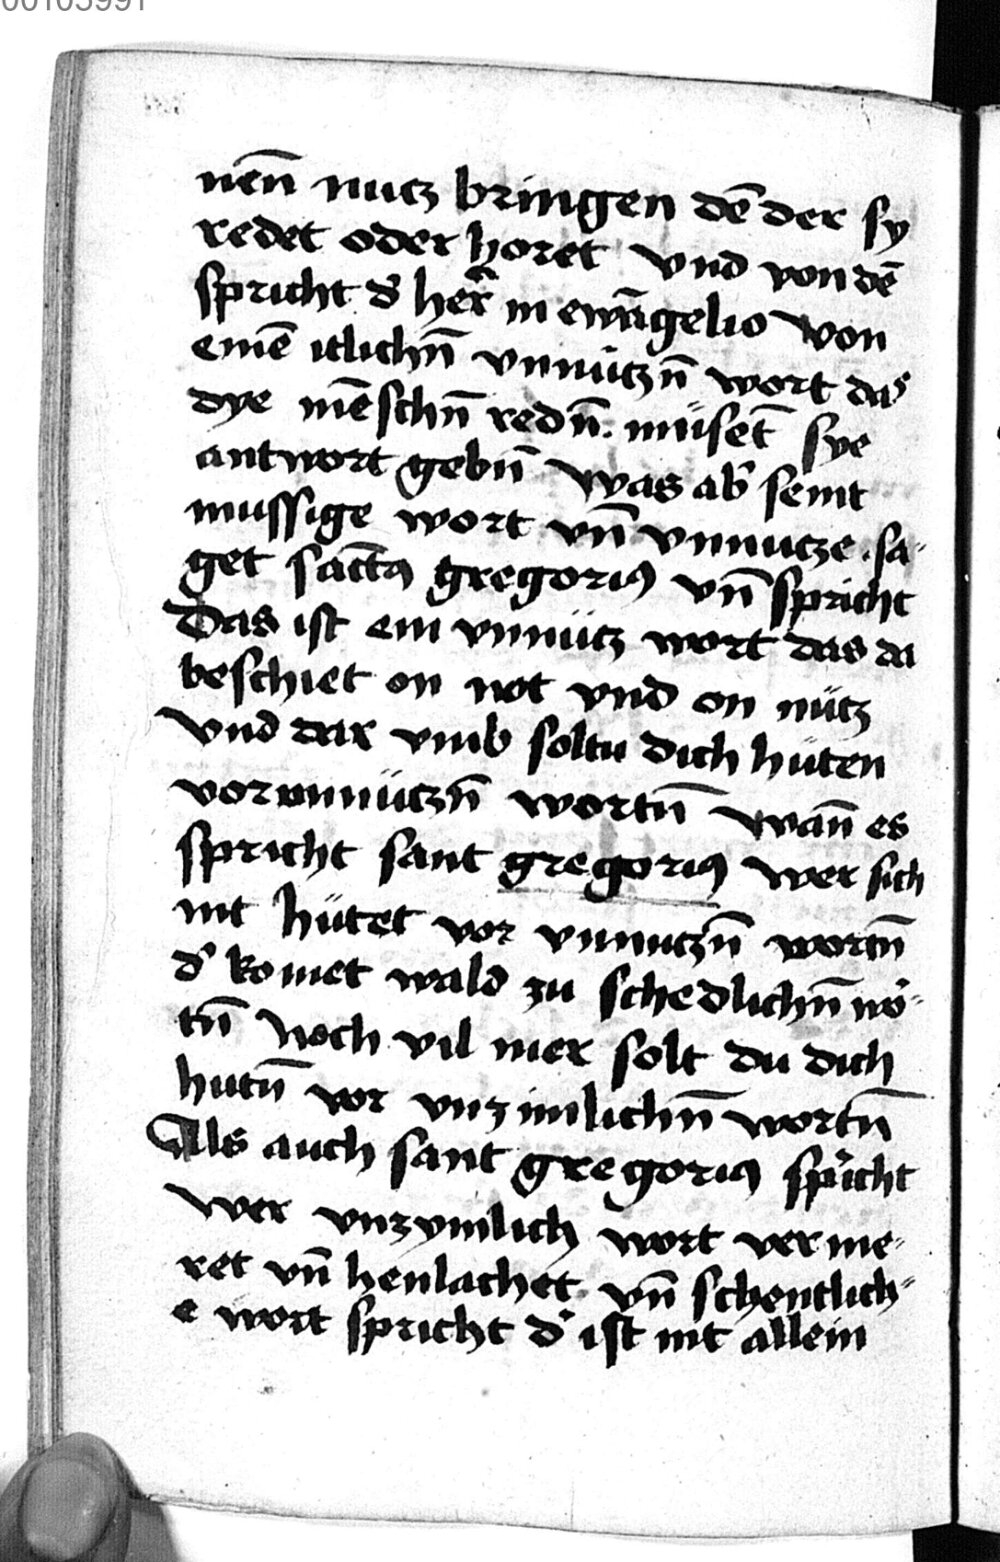 00103991
nēn nutz bringen dē der sy
redet oder horet vnd von dē
spricht d' her̄ in ewāgelio von
einē itlichn̄ vnnützn̄ wort das
dye mēschn̄ redn̄. müsēt sye
antwort gebn̄ was ab' seint
mussige wort vn̄ vnnutze . sa-
get sāctꝰ gregoriꝰ vn̄ spricht
Das ist ein vnnütz wort das da
beschiet on not vnd on nütz
vnd dar vmb soltu dich hüten
vor vnnützn̄ wortn̄ wān es
spricht sant gregoriꝰ wer sich
nit hütet vor vnnutzn̄ wortn̄
d' komet wald zu schedlichn̄ wo-
tn̄ Noch vil mer solt du dich
hutn̄ vor vnzimlichn̄ wortn̄
Als auch sant gregoriꝰ spricht
wer vnzymlich wort ver me-
ret vn̄ henlachet vn̄ schentlich-
e wort spricht d' ist nit allein